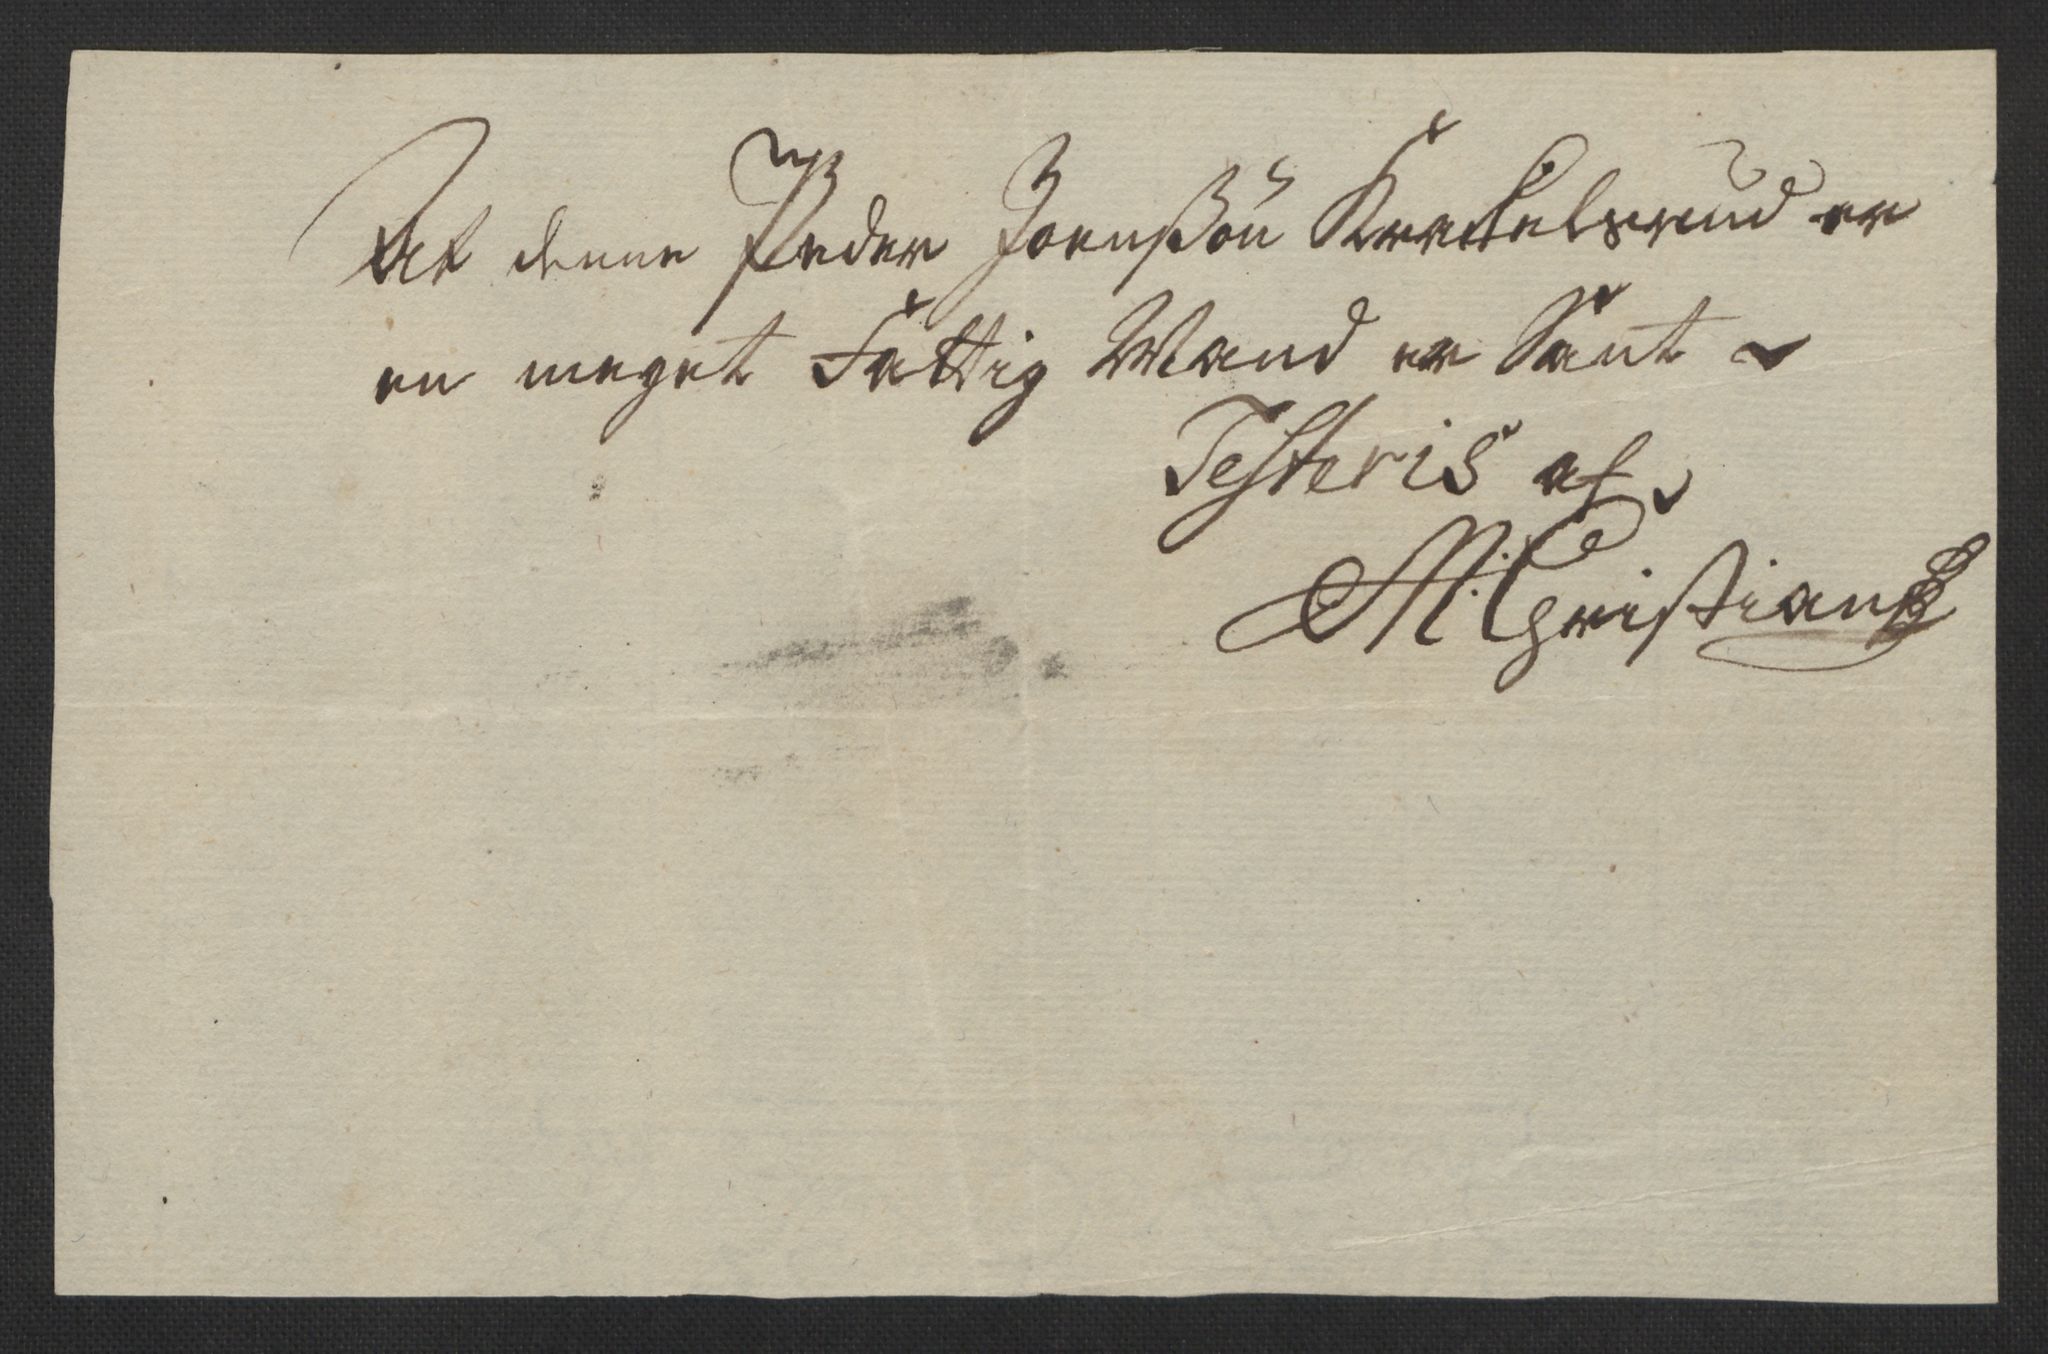 At denne Peder Joenßøn Krechelsrud er
en meget Fattig Mand er Sant
Testeris af
M: Christians